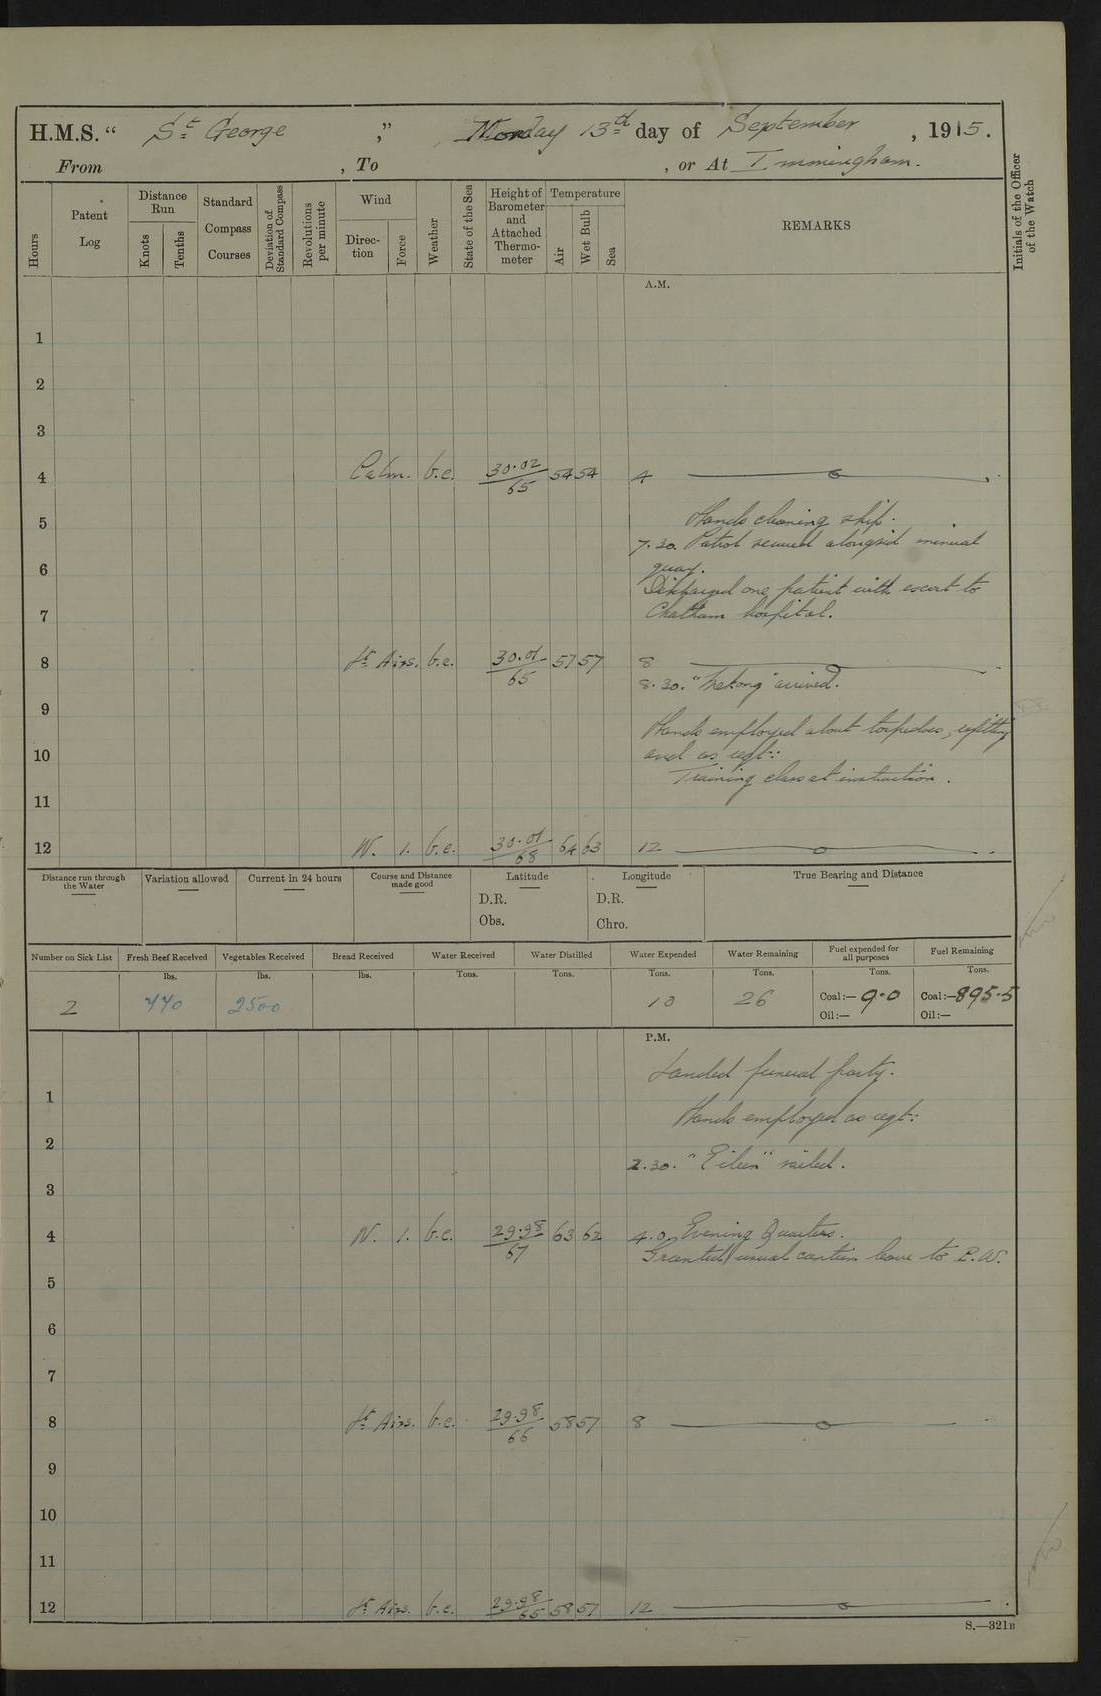 H.M.S. “ St George ,” Monday 13th day of September , 1915.
From , To , or At Immingham.
Hours
Patent Log
Distance Run
Knots
Tenths
Standard Compass Courses
Deviation of Standard Compass
Revolutions per minute
Wind
Direction
Force
Weather
State of the Sea
Height of Barometer and Attached Thermometer
Temperature
Air
Wet Bulb
Sea
REMARKS
Initials of the Officer of the Watch
A.M.
1
2
3
4 Calm. b.c. 30.02/65 54 54 4
5 Hands cleaning ship.
7.30. Patrol secured alongside mineral
6 quay.
Discharged one patient with escort to
7 Chatham hospital.
8 Lt Airs. b.c. 30.01/65 57 57 8
8.30. " arrived.
9
Hands employed about torpedoes, refitting
10 and as reqt:
Training class at instruction.
11
12 N. 1. b.c. 30.01/68 64 63 12
Distance run through the Water
Variation allowed
Current in 24 hours
Course and Distance made good
Latitude
D.R.
Obs.
Longitude
D.R.
Chro.
True Bearing and Distance
Number on Sick List
Fresh Beef Received
Vegetables Received
Bread Received
Water Received
Water Distilled
Water Expended
Water Remaining
Fuel expended for all purposes
Fuel Remaining
lbs. lbs. lbs. Tons. Tons. Tons. Tons. Tons. Tons.
2 440 2500 10 26 Coal:— 9.0 Coal:— 895.5
Oil:— Oil:—
P.M.
Landed funeral party.
1
Hands employed as reqt:
2
2.30. " " sailed.
3
4 N. 1. b.c. 29.98/67 63 62 4.0. Evening Quarters.
Granted usual canteen leave to P.W.
5
6
7
8 Lt Airs. b.c. 29.98/66 58 57 8
9
10
11
12 Lt Airs. b.c. 29.98/65 58 57 12
S.—321B